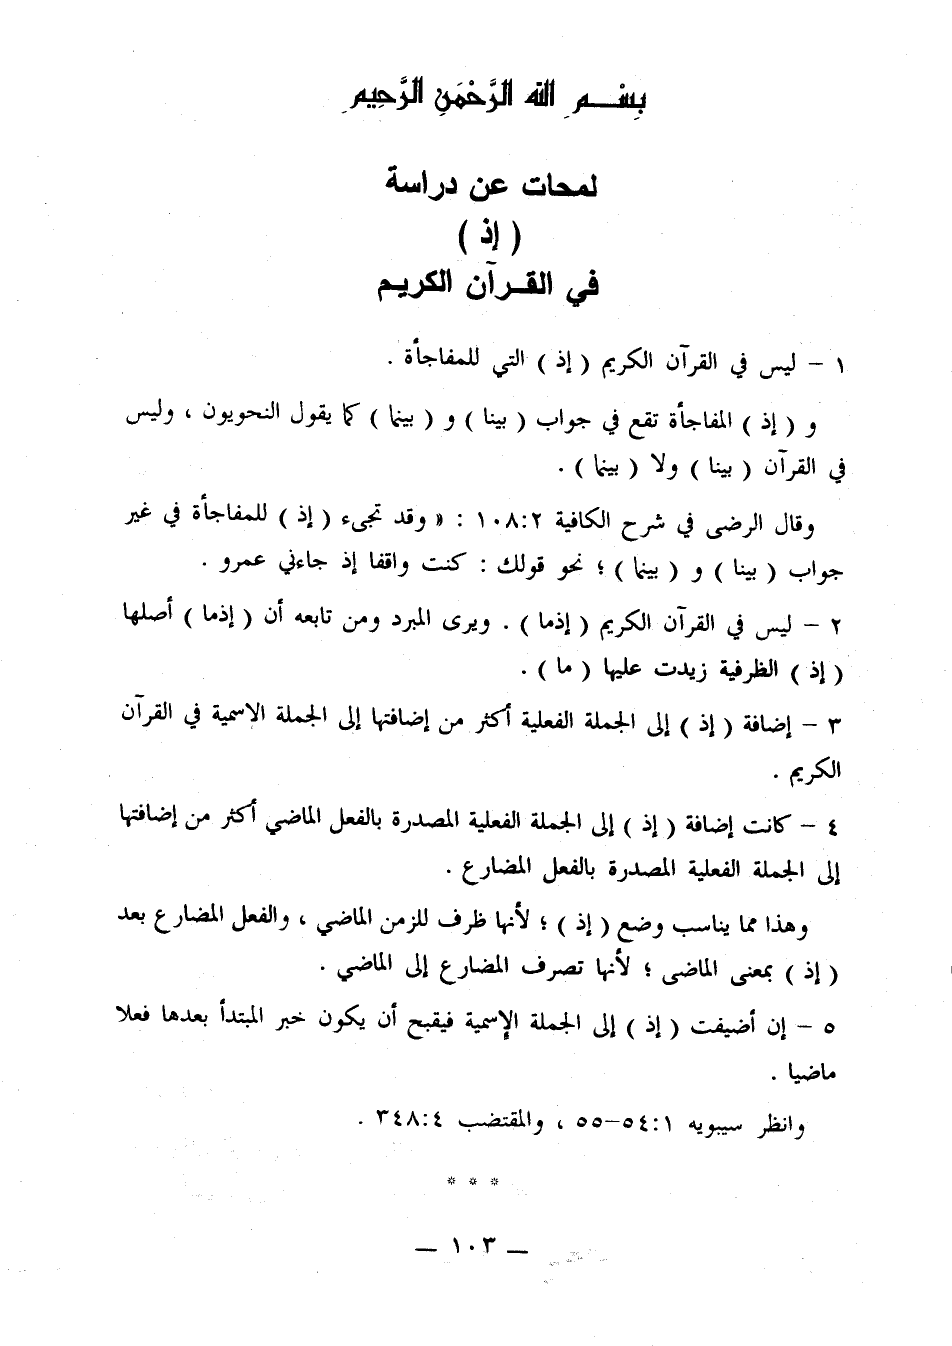 بِسْــمِ اللهِ الرَّحْمَنِ الرَّحِيمِ
لمحات عن دراسة
( إذ )
في القـرآن الكريـم
١ – ليس في القرآن الكريم ( إذ ) التي للمفاجأة .
و ( إذ ) المفاجأة تقع في جواب ( بينا ) و ( بينما ) كما يقول النحويون ، وليس
في القرآن ( بينا ) ولا ( بينما ) .
وقال الرضى في شرح الكافية ١٠٨:٢ : « وقد تجىء ( إذ ) للمفاجأة في غير
جواب ( بينا ) و ( بينما ) ؛ نحو قولك : كنت واقفا إذ جاءني عمرو .
٢ – ليس في القرآن الكريم ( إذما ) . ويرى المبرد ومن تابعه أن ( إذما ) أصلها
( إذ ) الظرفية زيدت عليها ( ما ) .
٣ – إضافة ( إذ ) إلى الجملة الفعلية أكثر من إضافتها إلى الجملة الاسمية في القرآن
الكريم .
٤ – كانت إضافة ( إذ ) إلى الجملة الفعلية المصدرة بالفعل الماضي أكثر من إضافتها
إلى الجملة الفعلية المصدرة بالفعل المضارع .
وهذا مما يناسب وضع ( إذ ) ؛ لأنها ظرف للزمن الماضي ، والفعل المضارع بعد
( إذ ) بمعنى الماضى ؛ لأنها تصرف المضارع إلى الماضي .
٥ – إن أضيفت ( إذ ) إلى الجملة الإسمية فيقبح أن يكون خبر المبتدأ بعدها فعلا
ماضيا .
وانظر سيبويه ٥٤:١–٥٥ ، والمقتضب ٣٤٨:٤ .
* * *
— ١٠٣ —